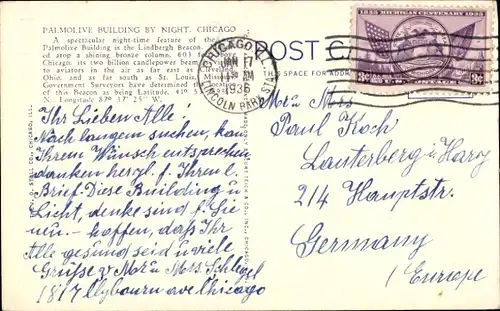 PALMOLIVE BUILDING BY NIGHT, CHICAGO
A spectacular night-time feature of the
Palmolive Building is the Lindbergh Beacon.
atop a shining bronze column, 603 f
Chicago, its two billion candlepower beam
to aviators in the air as far east as Clevel
Ohio, and as far south as St. Louis,
Government Surveyors have determined the
of this Beacon as being Latitude, 41º 5
N., Longitude 87º 17' 25" W.
CHICAGO, ILL.
JAN 17
AM
1936
LINCOLN PARK STA.
POST C
THIS SPACE FOR ADDR
1835 MICHIGAN CENTENARY 1935
3c 3c
Ihr Lieben Alle!
Nach langem suchen, kan
Ihrem Wunsch entsprechen
danken herzl. f. Ihren l.
Brief. Diese Buiilding u
Licht, denke sind f. Sie
neu. - hoffen, daß Ihr
Alle gesund seid u viele
Grüße v Mr u Mrs. Schlegel
1817 Clybourn ave Chicago
Mr u Mrs
Paul Koch
Lauterberg i/Harz
214 Hauptstr.
Germany
/Europe